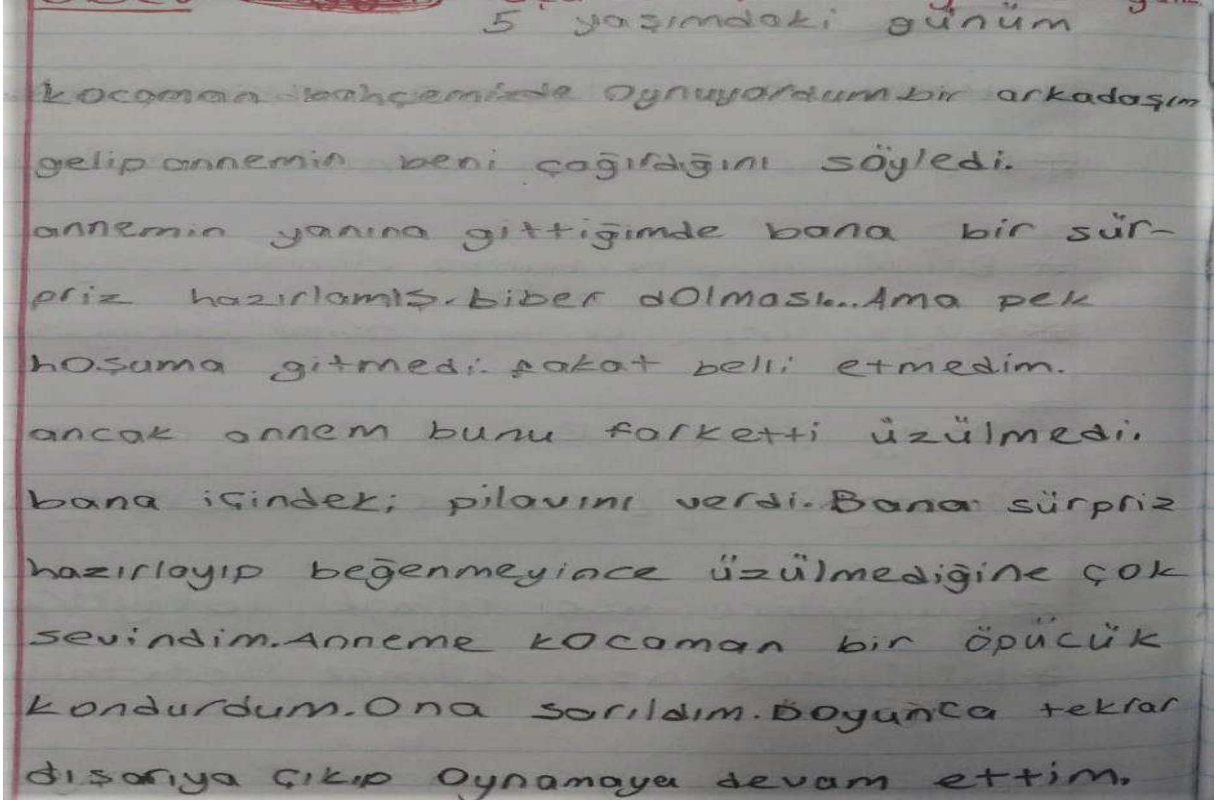 5 yaşımdaki günüm
kocaman bahçemizde oynuyordum bir arkadaşım
gelip annemin beni çağırdığını söyledi.
annemin yanına gittiğimde bana bir sür-
priz hazırlamış. biber dolması... Ama pek
hoşuma gitmedi. fakat belli etmedim.
ancak annem bunu farketti üzülmedi.
bana içindeki pilavını verdi. Bana sürpriz
hazırlayıp beğenmeyince üzülmediğine çok
sevindim. Anneme kocaman bir öpücük
kondurdum. Ona sarıldım. Doyunca tekrar
dışarıya çıkıp oynamaya devam ettim.